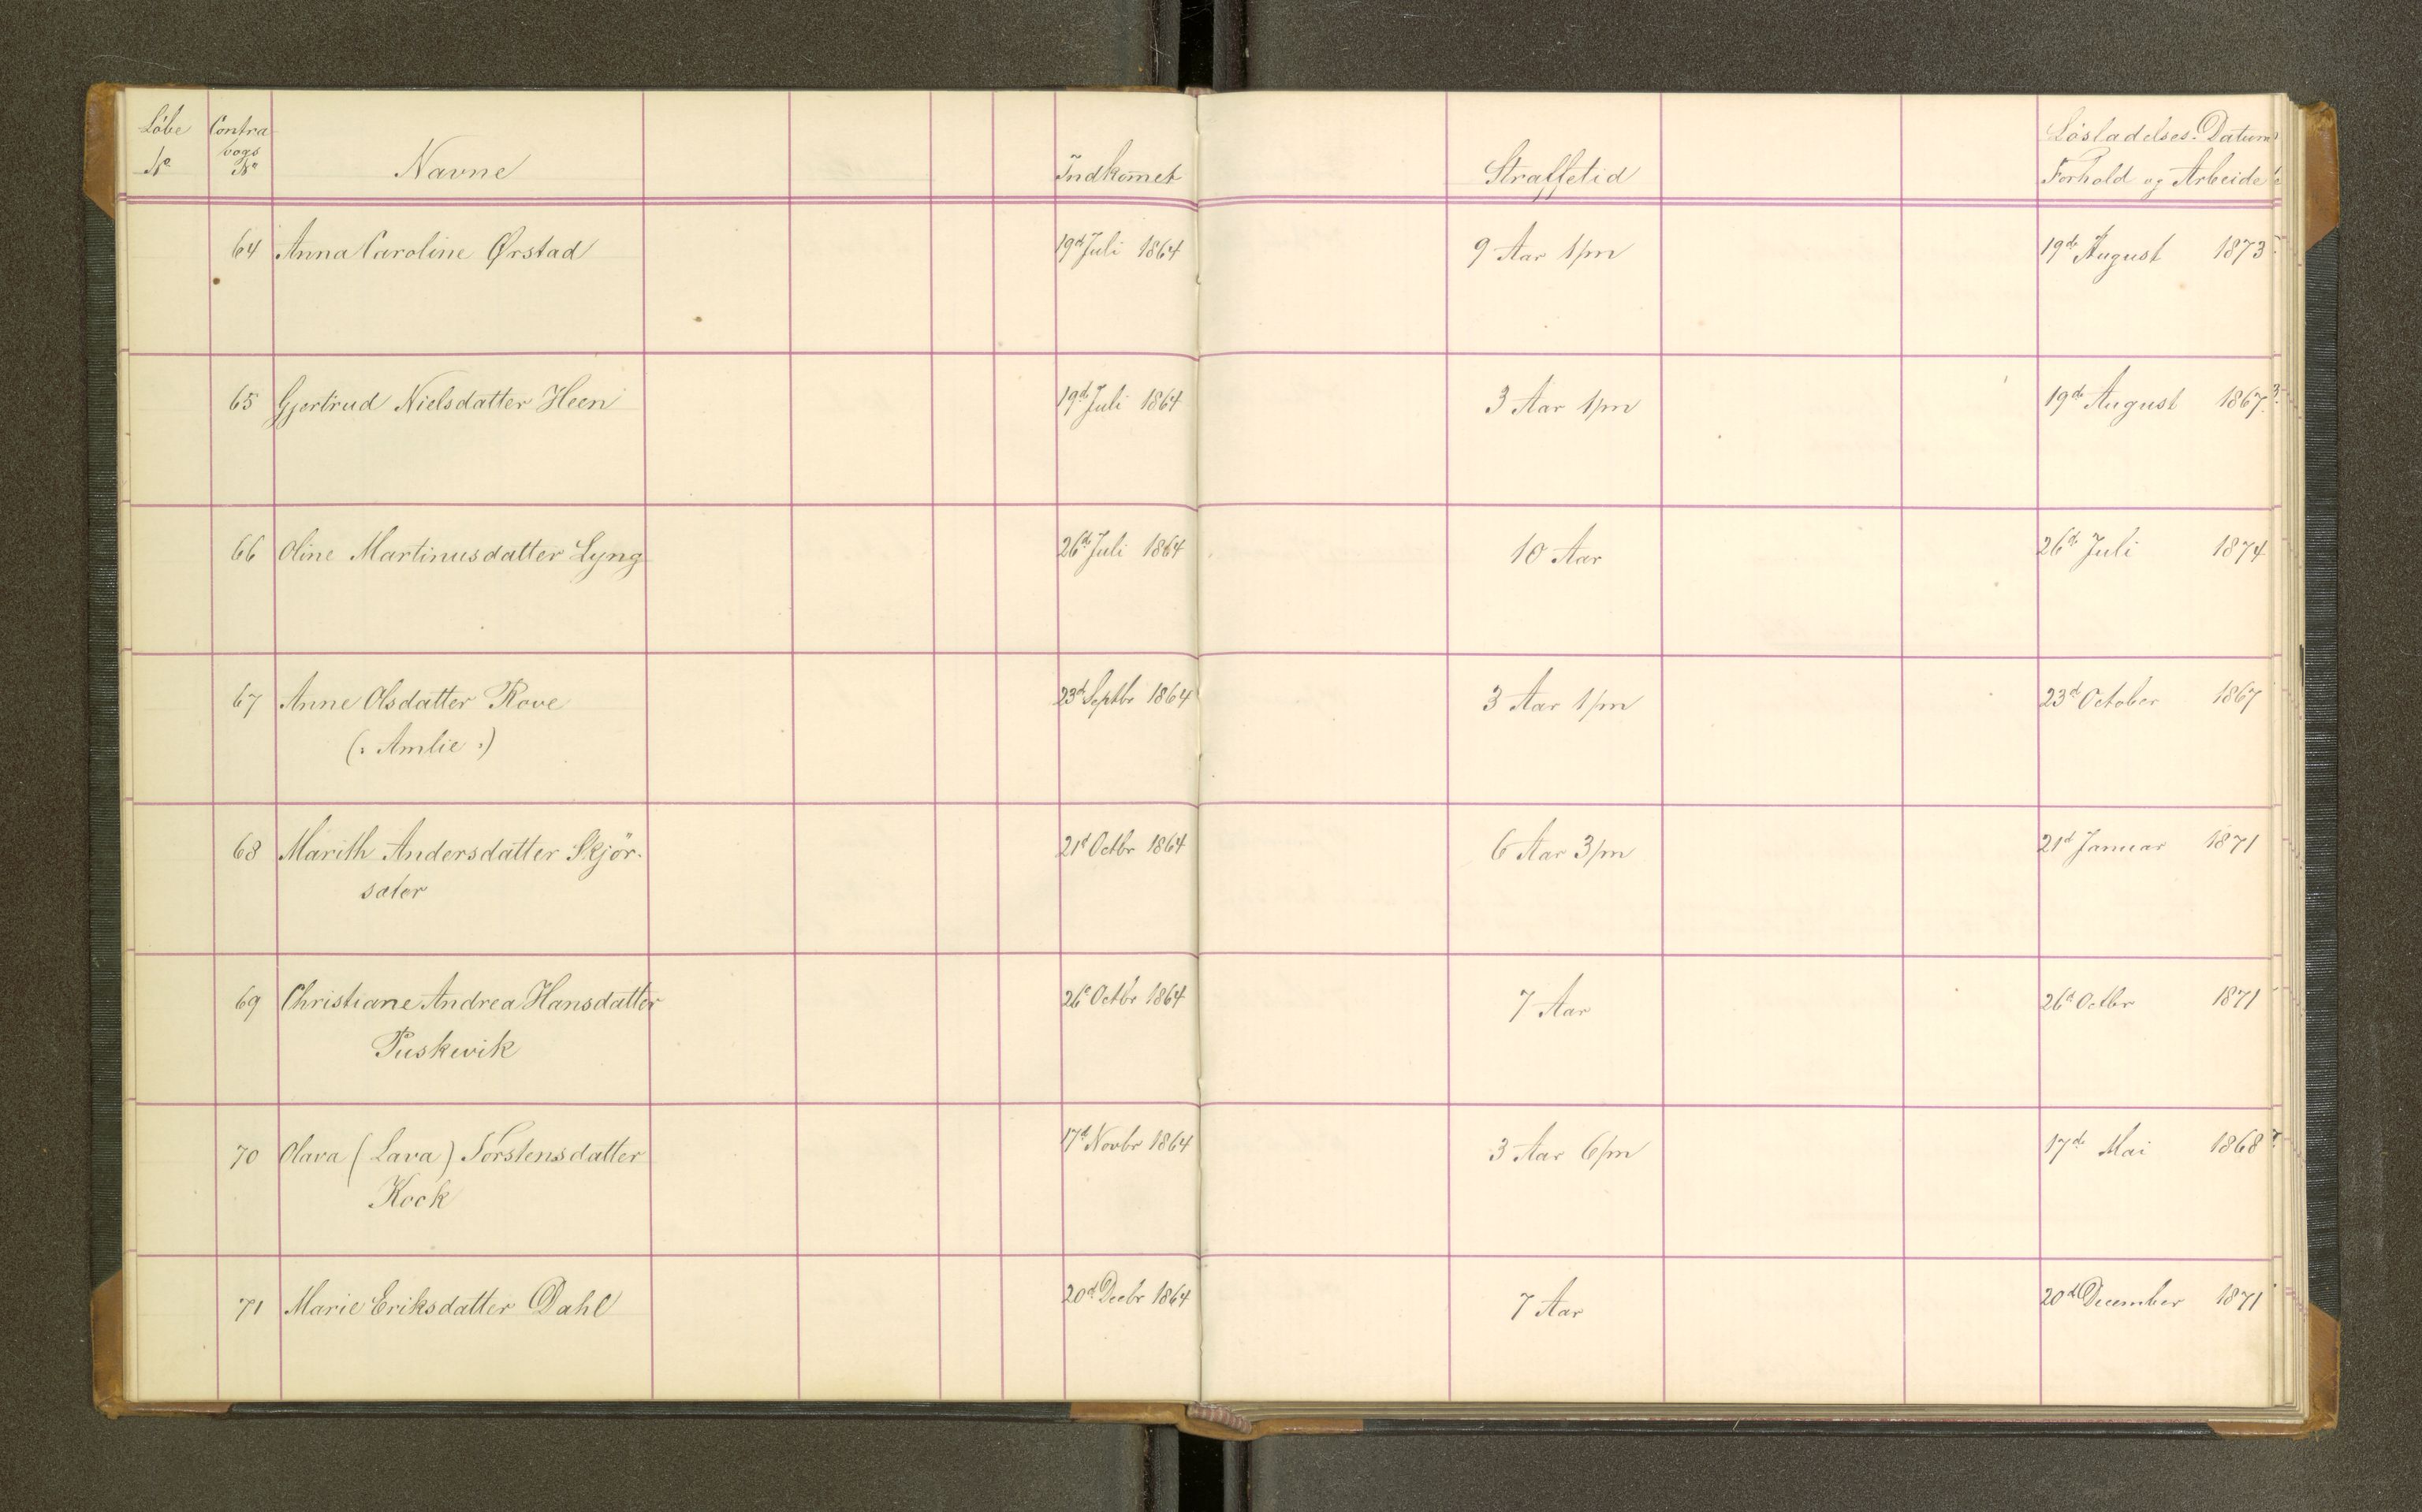 Löbe Contra Lösladelses-Datum
No bogs No Navne Indkomet Straffetid Forhold og Arbeide
64 Anna Caroline Ørstad 19de Juli 1864 9 Aar 1/m 19de August 1873
65 Gjertrud Nielsdatter Heen 19de Juli 1864 3 Aar 1/m 19de August 1867.
66 Oline Martinusdatter Lyng 26de Juli 1864 10 Aar 26de Juli 1874
67 Anne Olsdatter Rove 23d Septbr 1864 3 Aar 1/m 23d October 1867
(: Amlie :)
68 Marith Andersdatter Skjör- 21d Octbr 1864 6 Aar 3/m 21d Januar 1871
sæter
69 Christiane Andrea Hansdatter 26d Octbr 1864 7 Aar 26d Octbr 1871
Puskevik
70 Olava (Lava) Torstensdatter 17d Novbr 1864 3 Aar 6/m 17de Mai 1868
Kock
71 Marie Eriksdatter Dahl 20d Decbr 1864 7 Aar 20d December 1871